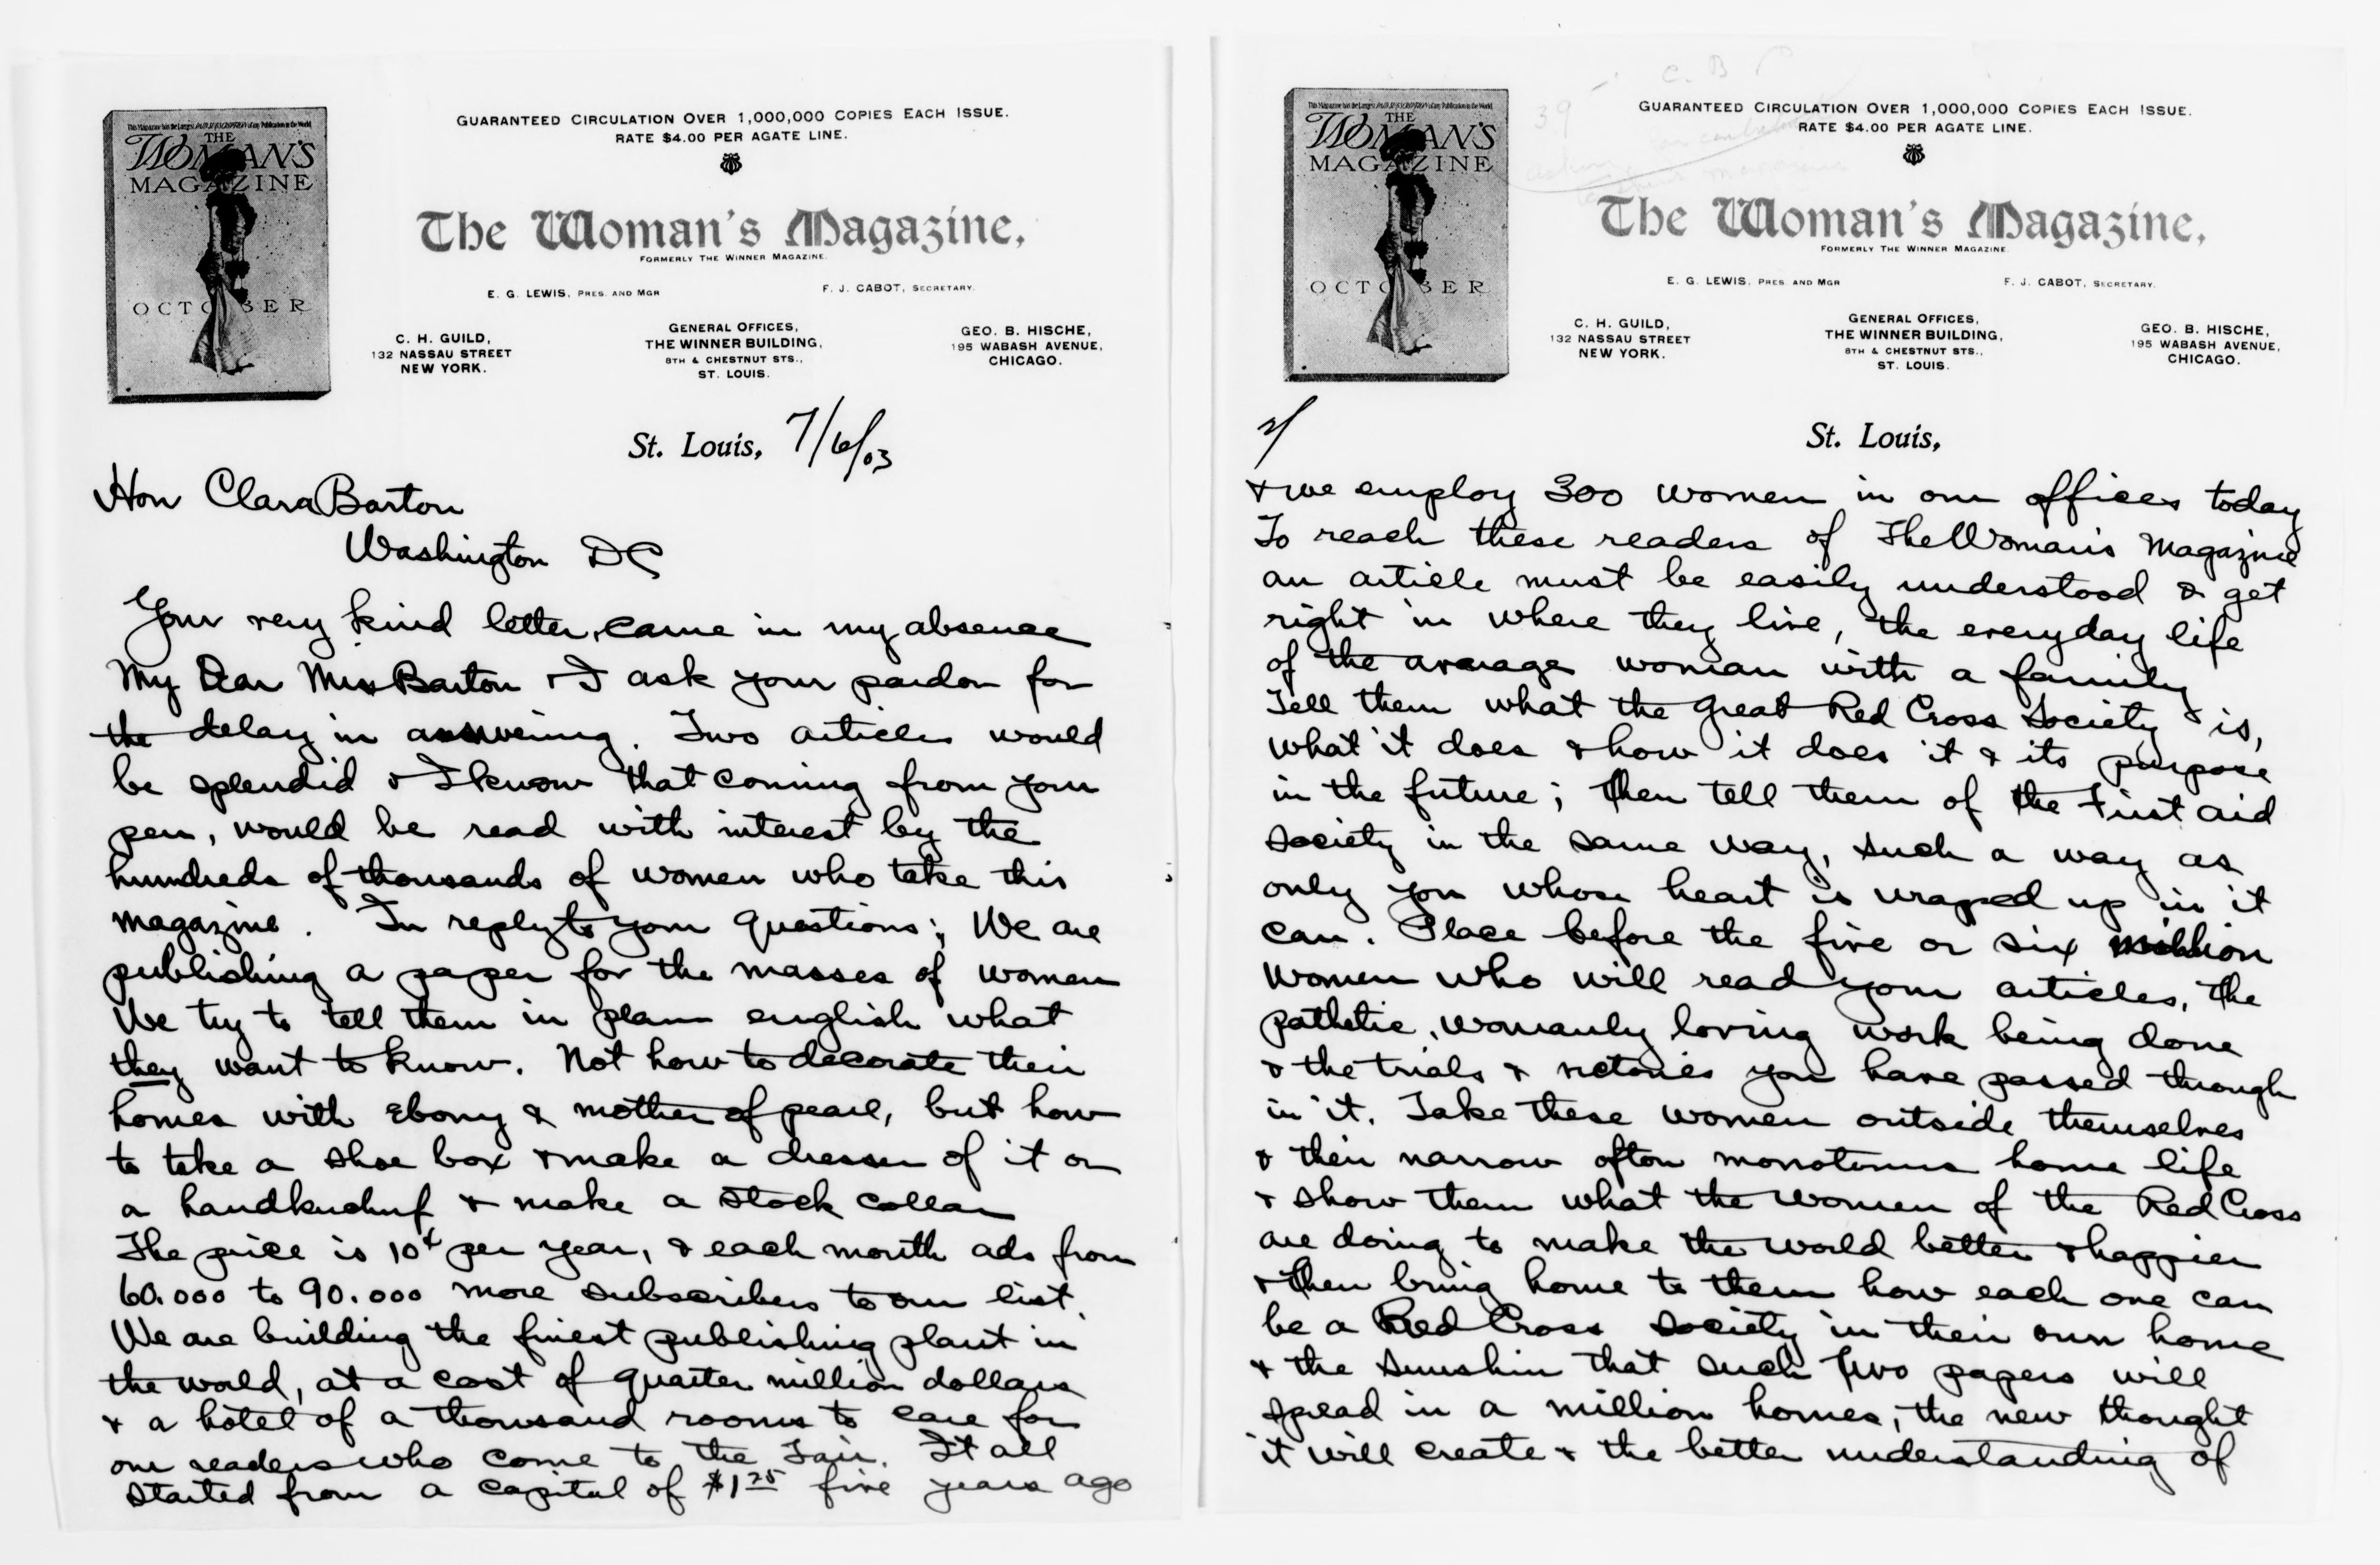 This Magazine has the Largest of any Publication in the World
THE
WOMAN'S
MAGAZINE
OCTOBER
GUARANTEED CIRCULATION OVER 1,000,000 COPIES EACH ISSUE.
RATE $4.00 PER AGATE LINE.
The Woman's Magazine,
FORMERLY THE WINNER MAGAZINE.
E. G. LEWIS, PRES. AND MGR
F. J. CABOT, SECRETARY.
C. H. GUILD,
132 NASSAU STREET
NEW YORK.
GENERAL OFFICES,
THE WINNER BUILDING,
8TH & CHESTNUT STS.,
ST. LOUIS.
GEO. B. HISCHE,
195 WABASH AVENUE,
CHICAGO.
St. Louis, 7/6/03
Hon Clara Barton
Washington DC
Your very kind letter, came in my absence
My Dear Miss Barton & I ask your pardon for
the delay in answering. Two articles would
be splendid & I know that coming from your
pen, would be read with interest by the
hundreds of thousands of women who take this
magazine. In reply to your questions; We are
publishing a paper for the masses of women
We try to tell them in plain english what
they want to know. Not how to decorate their
homes with Ebony & mother of pearl, but how
to take a shoe box & make a dresser of it or
a handkuchuf & make a stock collar
The price is 10¢ per year, & each month ads from
60.000 to 90.000 more subscribers to our list.
We are building the finest publishing plant in
the world, at a cost of quarter million dollars
& a hotel of a thousand rooms to care for
our readers who come to the Fair. It all
started from a capital of $1 25 five years ago
C. B
39
This Magazine has the Largest of any Publication in the World
THE
WOMAN'S
MAGAZINE
OCTOBER
GUARANTEED CIRCULATION OVER 1,000,000 COPIES EACH ISSUE.
RATE $4.00 PER AGATE LINE.
The Woman's Magazine,
FORMERLY THE WINNER MAGAZINE.
E. G. LEWIS, PRES. AND MGR
F. J. CABOT, SECRETARY.
C. H. GUILD,
132 NASSAU STREET
NEW YORK.
GENERAL OFFICES,
THE WINNER BUILDING,
8TH & CHESTNUT STS.,
ST. LOUIS.
GEO. B. HISCHE,
195 WABASH AVENUE,
CHICAGO.
2/
St. Louis,
& we employ 300 women in our offices today
To reach these readers of The Woman's Magazine
an article must be easily understood & get
right in where they live, the everyday life
of the average woman with a family
Tell them what the great Red Cross Society is,
what it does & how it does it & its purpose
in the future; then tell them of the First aid
society in the same way, such a way as
only you whose heart is wraped up in it
can. Place before the five or six million
women who will read your articles, the
pathetic, womanly loving work being done
& the trials & victories you have passed through
in it. Take these women outside themselves
& their narrow often monotonus home life
& show them what the women of the Red Cross
are doing to make the world better & happier
& then bring home to them how each one can
be a Red Cross society in their own home
& the sunshin that such two papers will
spread in a million homes, the new thought
it will create & the better understanding of